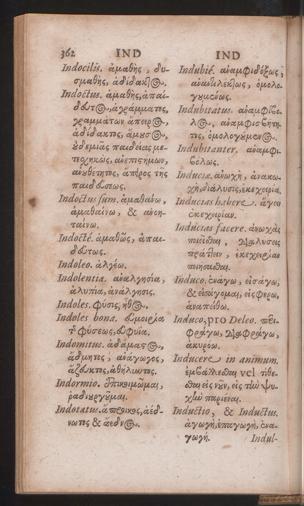 362 IND
Indocilis. ἀμαθὴς, δυ-
σμαθὴς, ἀδίδακτος.
Indoctus. ἀμαθὴς, ἀπαί-
δευτος, ἀγράμματος,
γραμμάτων ἄπειρος,
ἀδίδακτος, ἄμουσος,
οὐδεμιᾶς παιδείας με-
τεχηκὼς, ἀνεπιστήμων,
ἀνάγωγος, ἄπειρος τῆς
παιδεύσεως.
Indoctus sum. ἀμαθαίνω,
ἀμαθαίνω, & ἀνοη-
ταίνω.
Indoctè. ἀμαθῶς, ἀπαι-
δεύτως.
Indoleo. ἀλγέω.
Indolentia. ἀναλγησία,
ἀλυπία, ἀνάλγησις.
Indoles. φύσις, ἦθος.
Indoles bona. εὐμοιρία
τ̃ φύσεως, εὐφυΐα.
Indomitus. ἀδάμαστος,
ἀδμητὶς, ἀνάγωγος,
ἀζευκτος, ἀθήλωτος.
Indormio. ἐπικοιμῶμαι,
ῥᾳδιουργῦμαι.
Indotatus. ἀπροικος, ἀέδ-
νωτις & ἄεδνος.
IND
Indubiè. ἀναμφιδόξως,
ἀναντιλέκτως, ὁμολο-
γουμένως.
Indubitatus. ἀναμφίβο-
λος, ἀναμφισβήτη-
τος, ὁμολογούμενος.
Indubitanter. ἀναμφι-
βόλως.
Induciæ. ἀνωχὴ, ἀνακω-
χὴ, διάλυσις, ἐκεχειρία.
Inducias habere. ἄγειν
ἐκεχειρίαν.
Inducias facere. ἀνωχὰς
ποιεῖσθαι, διαλύσεις
πράττειν, ἐκεχειρίαν
ποιησαδαι.
Induco. ἐνάγω, εἰσάγω,
& εἰσάγομαι, εἰσφέρω,
ἀναπείθω.
Induco, pro Deleo. περι-
γράφω, διαγράφω,
ἀκυρόω.
Inducere in animum.
ἐμβάλλεσθαι vel τίθε-
σθαι εἰς νοῦν, εἰς τὴν ψυ-
χὴν παριέναι.
Inductio, & Inductus.
ἀγωγὴ, ἐπαγωγὴ, ἐνα-
γωγή.
Indul-